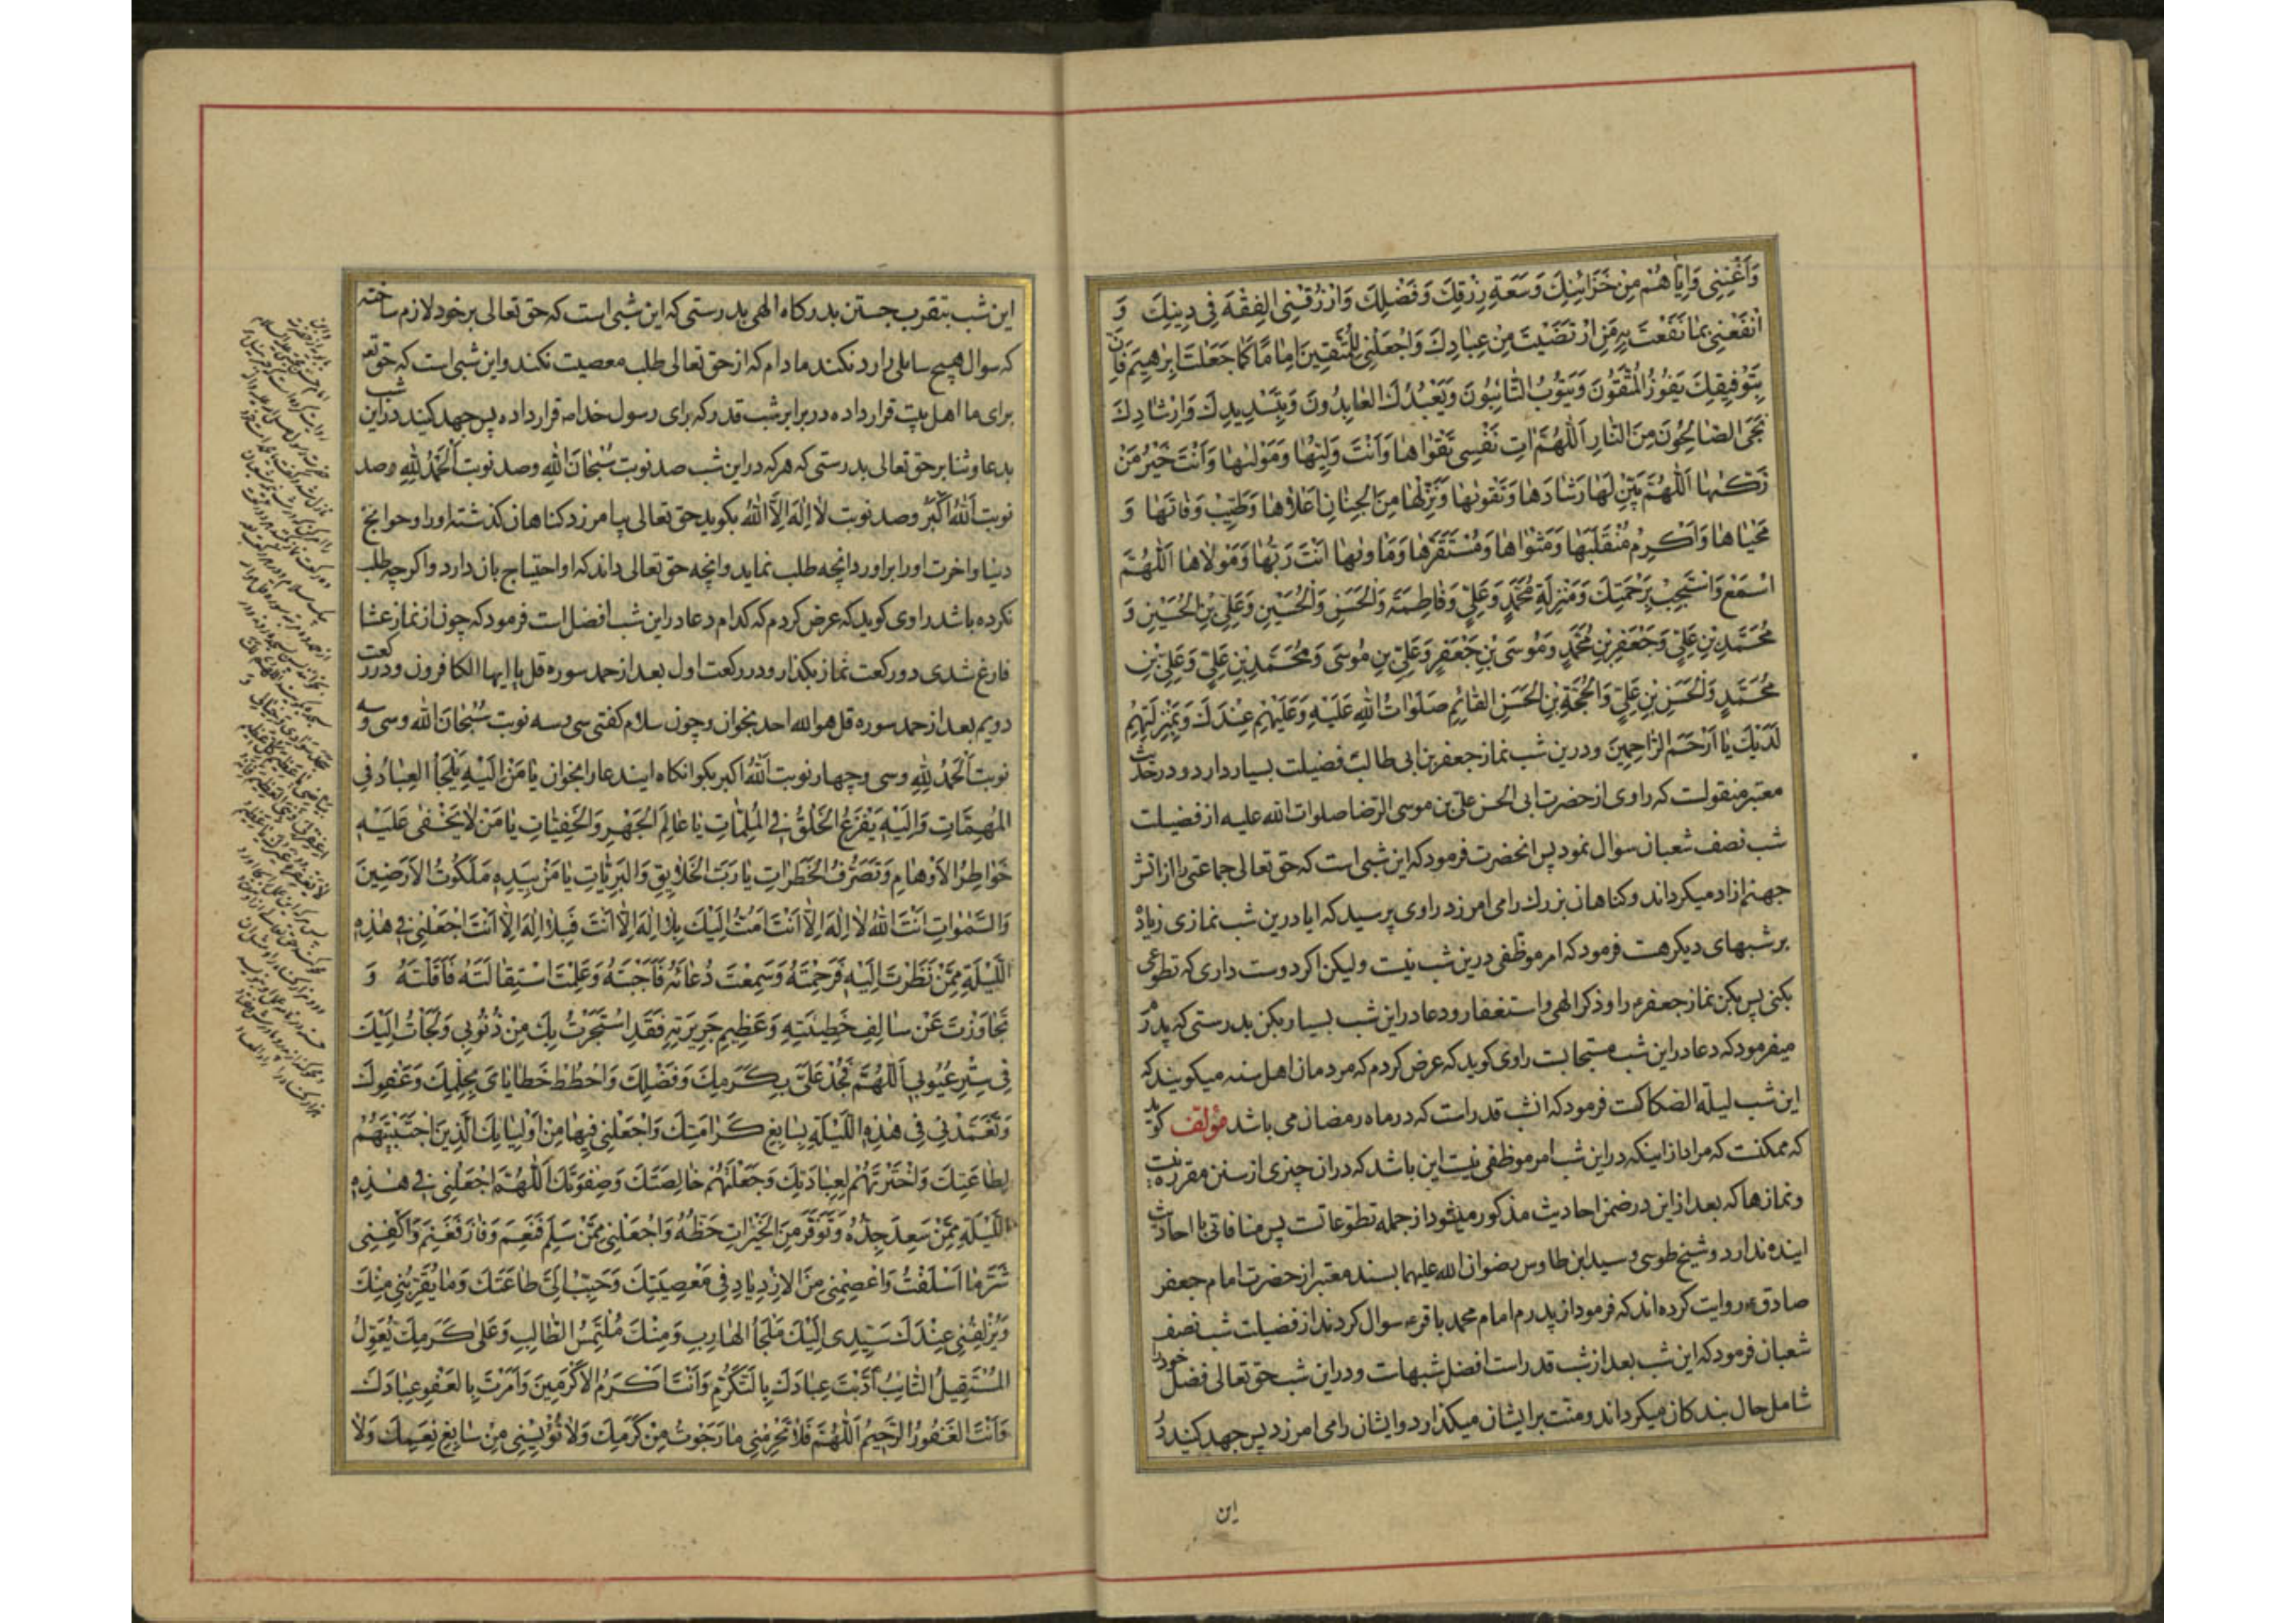 وَأَغْنِنِي وَإِيَّاهُمْ مِنْ خَزَائِنِكَ وَسَعَةِ رِزْقِكَ وَفَضْلِكَ وَارْزُقْنِي الفِقْهَ فِي دِينِكَ وَ
انْفَعْنِي بِمَا نَفَعْتَ بِهِ مَنِ ارْتَضَيْتَ مِنْ عِبَادِكَ وَاجْعَلْنِي لِلْمُتَّقِينَ اِمَامًا كَمَا جَعَلْتَ اِبْرٰهِيمَ فَاِنَّ
بِتَوْفِيقِكَ يَفُوزُ الْمُتَّقُونَ وَيَتُوبُ التَّائِبُونَ وَيَعْبُدُكَ العَابِدُونَ وَبِتَسْدِيدِكَ وَاِرْشَادِكَ
نَجَى الصَّالِحُونَ مِنَ النَّارِ اَللّٰهُمَّ اٰتِ نَفْسِي تَقْوٰاهَا وَاَنْتَ وَلِيُّهَا وَمَوْلٰىهَا وَاَنْتَ خَيْرُ مَنْ
زَكّٰىهَا اَللّٰهُمَّ بَيِّنْ لَهَا رَشَادَهَا وَتَقْوٰىهَا وَنَزِّلْهَا مِنَ الْجِنَانِ اَعْلَاهَا وَطَيِّبْ وَفَاتَهَا وَ
مَحْيَاهَا وَاَكْرِمْ مُنْقَلَبَهَا وَمَثْوٰاهَا وَمُسْتَقَرَّهَا وَمَاوٰىهَا اَنْتَ رَبُّهَا وَمَوْلَاهَا اَللّٰهُمَّ
اسْمَعْ وَاسْتَجِبْ بِرَحْمَتِكَ وَمَنْزِلَةِ مُحَمَّدٍ وَعَلِيٍّ وَفَاطِمَةَ وَالْحَسَنِ وَالْحُسَيْنِ وَعَلِيِّ بْنِ الْحُسَيْنِ وَ
مُحَمَّدِ بْنِ عَلِيٍّ وَجَعْفَرِ بْنِ مُحَمَّدٍ وَمُوسَى بْنِ جَعْفَرٍ وَعَلِيِّ بْنِ مُوسَى وَمُحَمَّدِ بْنِ عَلِيٍّ وَعَلِيِّ بْنِ
مُحَمَّدٍ وَالْحَسَنِ بْنِ عَلِيٍّ وَالْحُجَّةِ بْنِ الْحَسَنِ القَائِمِ صَلَوَاتُ اللّٰهِ عَلَيْهِ وَعَلَيْهِمْ عِنْدَكَ وَبِمَنْزِلَتِهِمْ
لَدَيْكَ يَا اَرْحَمَ الرَّاحِمِينَ ودرين شب نماز جعفر بن ابى طالب فضيلت بسيار دارد ودر حديث
معتبر منقولست كه راوى از حضرت ابى الحسن على بن موسى الرضا صلوات الله عليه از فضيلت
شب نصف شعبان سوال نمود پس انحضرت فرمود كه اين شبى است كه حق تعالى جماعتى را از اتش
جهنم ازاد ميكرداند وكناهان بزرك را مى امرزد راوى پرسيد كه ايا درين شب نمازى زياده
بر شبهاى ديكر هست فرمود كه امر موظفى درين شب نيست وليكن اكر دوست دارى كه تطوعى
بكنى پس بكن نماز جعفر را وذكر الهى واستغفار ودعا در اين شب بسيار بكن بدرستى كه پدرم
ميفرمود كه دعا در اين شب مستجابست راوى كويد كه عرض كردم كه مردمان اهل سنه ميكويند كه
اين شب ليلة الصكاكست فرمود كه انشب قدر است كه در ماه رمضان مى باشد مؤلف كويد
كه ممكنست كه مراد از اينكه در اين شب امر موظفى نيست اين باشد كه در ان چيزى از سنن مقرره نيست
ونمازها كه بعد از اين در ضمن احاديث مذكور ميشود از جمله تطوعاتست پس منافاتى با احاديث
اينده ندارد وشيخ طوسى وسيد ابن طاوس رضوان الله عليهما بسند معتبر از حضرت امام جعفر
صادق ع روايت كرده اند كه فرمود از پدرم امام محمد باقر ع سوال كردند از فضيلت شب نصف
شعبان فرمود كه اين شب بعد از شب قدر است افضل شبهاست ودر اين شب حق تعالى فضل خود را
شامل حال بندكان ميكرداند ومنت بر ايشان ميكذارد وايشان را مى امرزد پس جهد كنيد در
اين
اين شب بتقرب جستن بدركاه الهى بدرستى كه اين شبى است كه حق تعالى بر خود لازم ساخته
كه سوال هيچ سايلى را رد نكند ما دام كه از حق تعالى طلب معصيت نكند واين شبى است كه حق تعه
براى ما اهل بيت قرار داده در برابر شب قدر كه براى رسول خدا ص قرار داده پس جهد كنيد در اين شب
بدعا وثنا بر حق تعالى بدرستى كه هر كه در اين شب صد نوبت سُبْحَانَ اللّٰهِ وصد نوبت اَلْحَمْدُ لِلّٰهِ وصد
نوبت اَللّٰهُ اَكْبَرُ وصد نوبت لَا اِلٰهَ اِلَّا اللّٰهُ بكويد حق تعالى بيامرزد كناهان كذشته او را وحوايج
دنيا واخرت او را براورد انچه طلب نمايد وانچه حق تعالى داند كه او احتياج بان دارد واكر چه طلب
نكرده باشد راوى كويد كه عرض كردم كه كدام دعا در اين شب افضل است فرمود كه چون از نماز عشا
فارغ شدى دو ركعت نماز بكذار ودر ركعت اول بعد از حمد سوره قل يا ايها الكافرون ودر ركعت
دويم بعد از حمد سوره قل هو الله احد بخوان وچون سلام كفتى سى وسه نوبت سُبْحَانَ اللّٰه وسى وسه
نوبت اَلْحَمْدُ لِلّٰهِ وسى وچهار نوبت اَللّٰهُ اكبر بكو انكاه ايندعا را بخوان يَا مَنْ اِلَيْهِ يَلْجَأُ العِبَادُ فِي
المُهِمَّاتِ وَاِلَيْهِ يَفْزَعُ الْخَلْقُ فِي الْمُلِمَّاتِ يَا عَالِمَ الْجَهْرِ وَالْخَفِيَّاتِ يَا مَنْ لَا يَخْفٰى عَلَيْهِ
خَوَاطِرُ الْاَوْهَامِ وَتَصَرُّفُ الْخَطَرَاتِ يَا رَبَّ الْخَلَايِقِ وَالْبَرِيَّاتِ يَا مَنْ بِيَدِهِ مَلَكُوتُ الْاَرَضِينَ
وَالسَّمٰوَاتِ اَنْتَ اللّٰهُ لَا اِلٰهَ اِلَّا اَنْتَ اَمُتُّ اِلَيْكَ بِلَا اِلٰهَ اِلَّا اَنْتَ فَيَا لَا اِلٰهَ اِلَّا اَنْتَ اجْعَلْنِي فِي هٰذِهِ
اللَّيْلَةِ مِمَّنْ نَظَرْتَ اِلَيْهِ فَرَحِمْتَهُ وَسَمِعْتَ دُعَائَهُ فَاَجَبْتَهُ وَعَلِمْتَ اسْتِقَالَتَهُ فَاَقَلْتَهُ وَ
تَجَاوَزْتَ عَنْ سَالِفِ خَطِيئَتِهِ وَعَظِيمِ جَرِيرَتِهِ فَقَدِ اسْتَجَرْتُ بِكَ مِنْ ذُنُوبِي وَلَجَأْتُ اِلَيْكَ
فِي سَتْرِ عُيُوبِي اَللّٰهُمَّ فَجُدْ عَلَيَّ بِكَرَمِكَ وَفَضْلِكَ وَاحْطُطْ خَطَايَايَ بِحِلْمِكَ وَعَفْوِكَ
وَتَغَمَّدْنِي فِي هٰذِهِ اللَّيْلَةِ بِسَابِغِ كَرَامَتِكَ وَاجْعَلْنِي فِيهَا مِنْ اَوْلِيَائِكَ الَّذِينَ اجْتَبَيْتَهُمْ
لِطَاعَتِكَ وَاخْتَرْتَهُمْ لِعِبَادَتِكَ وَجَعَلْتَهُمْ خَالِصَتَكَ وَصِفْوَتَكَ اَللّٰهُمَّ اجْعَلْنِي فِي هٰذِهِ
اللَّيْلَةِ مِمَّنْ سَعِدَ جِدُّهُ وَتَوَفَّرَ مِنَ الْخَيْرَاتِ حَظُّهُ وَاجْعَلْنِي مِمَّنْ سَلِمَ فَنَعِمَ وَفَازَ فَغَنِمَ وَاكْفِنِي
شَرَّ مَا اَسْلَفْتُ وَاعْصِمْنِي مِنَ الْاِزْدِيَادِ فِي مَعْصِيَتِكَ وَحَبِّبْ اِلَيَّ طَاعَتَكَ وَمَا يُقَرِّبُنِي مِنْكَ
وَيُزْلِفُنِي عِنْدَكَ سَيِّدِي اِلَيْكَ مَلْجَأُ الهَارِبِ وَمِنْكَ مُلْتَمَسُ الطَّالِبِ وَعَلٰى كَرَمِكَ يُعَوِّلُ
المُسْتَقِيلُ التَّائِبُ اَدَّبْتَ عِبَادَكَ بِالتَّكَرُّمِ وَاَنْتَ اَكْرَمُ الْاَكْرَمِينَ وَاَمَرْتَ بِالعَفْوِ عِبَادَكَ
وَاَنْتَ الغَفُورُ الرَّحِيمُ اَللّٰهُمَّ فَلَا تَحْرِمْنِي مَا رَجَوْتُ مِنْ كَرَمِكَ وَلَا تُؤْيِسْنِي مِنْ سَابِغِ نِعَمِكَ وَلَا